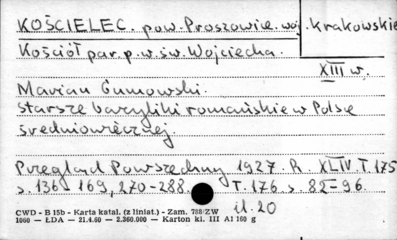 KOŚCIELEC. pow. Proszowice. woj. krakowskie
Kościół par. p.w. św. Wojciecha.
XIII w.
Marian Gumowski.
Starsze bazyliki romańskie w Polsce
średniowiecznej.
Przegląd Powszechny 1927. R. XLIV. T. 175
s. 136 169, 270-288. T. 176. s. 82-96.
il. 20
CWD - B 15b - Karta katal. (z liniat.) - Zam. 788/ZW
1060 — ŁDA — 21.4.60 — 2.360.000 — Karton kl. III A1 160 g